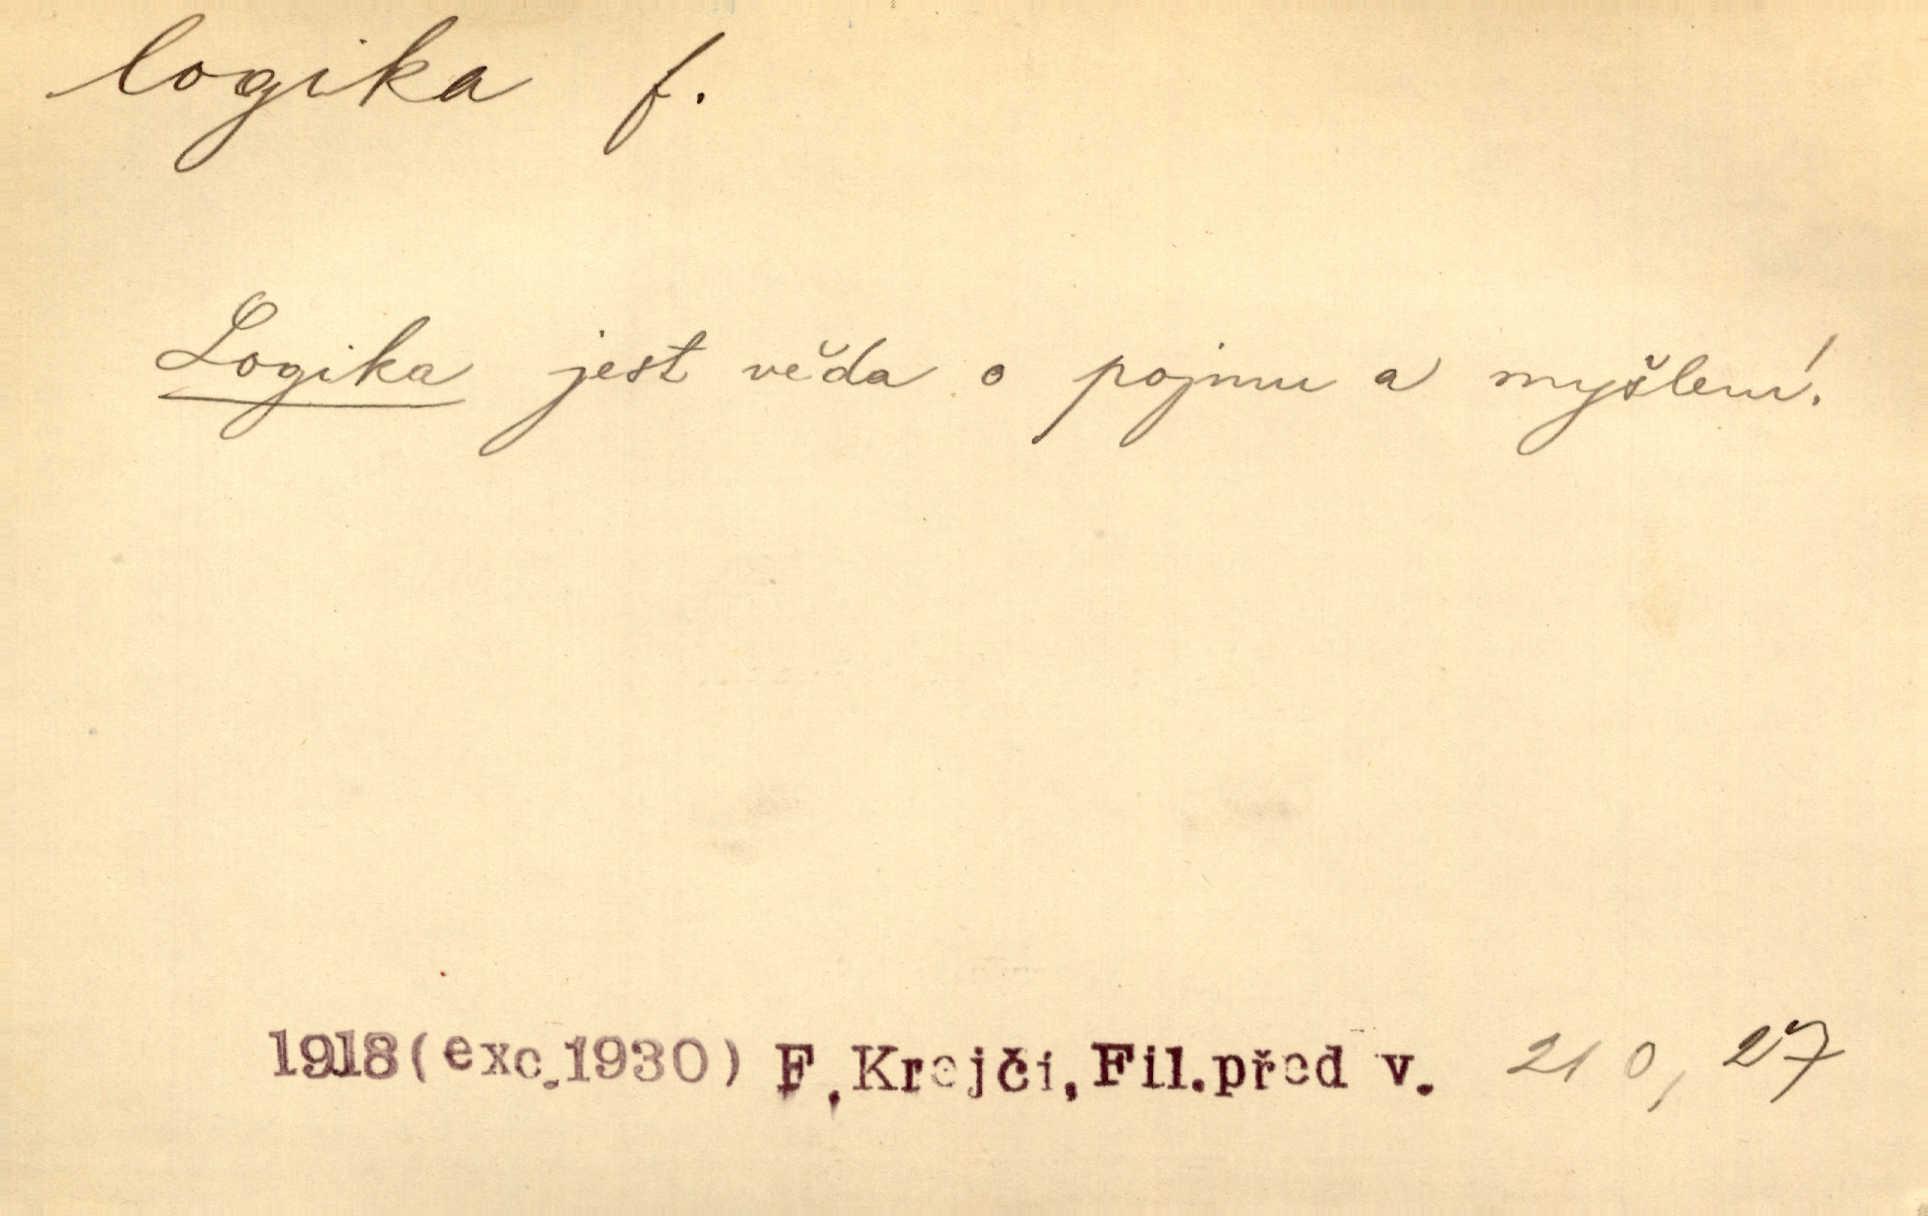 logika f.
Logika jest věda o pojmu a myšlení.
1918(exc.1930) F.Krejčí,Fil.před v. 210, 27